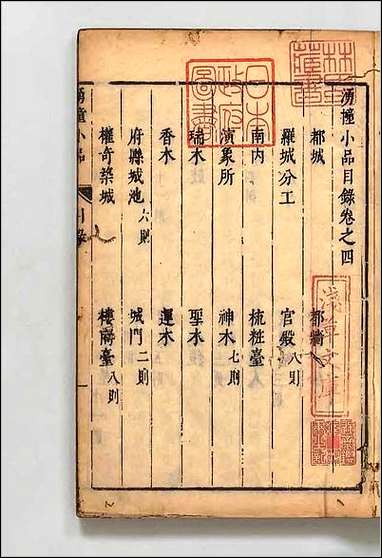 湧幢小品目錄卷之四
都城
都牆
羅城分工
官殿八則
南内
梳粧臺
演象所
神木七則
瑞木
聖木
香木
運木
府縣城池六則
城門二則
權奇築城
樓商臺八則
湧幢小品
目錄
日本政府圖書
淺草文庫
林氏藏書